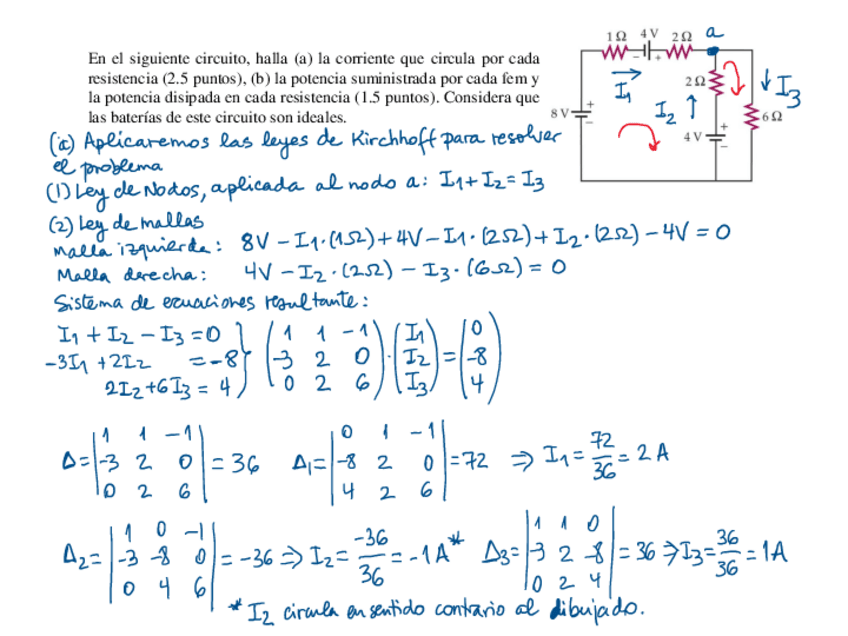 En el siguiente circuito, halla (a) la corriente que circula por cada
resistencia (2.5 puntos), (b) la potencia suministrada por cada fem y
la potencia disipada en cada resistencia (1.5 puntos). Considera que
las baterías de este circuito son ideales.
1Ω 4V 2Ω a
- +
I₁
2Ω
I₂ ↑
↓ I₃
8V + -
6Ω
4V + -
(a) Aplicaremos las leyes de Kirchhoff para resolver
el problema
(1) Ley de Nodos, aplicada al nodo a: I₁+I₂=I₃
(2) Ley de mallas
Malla izquierda: 8V-I₁·(1Ω)+4V-I₁·(2Ω)+I₂·(2Ω)-4V=0
Malla derecha: 4V-I₂·(2Ω)-I₃·(6Ω)=0
Sistema de ecuaciones resultante:
I₁+I₂-I₃=0 } ( 1 1 -1 ) ( I₁ ) ( 0 )
-3I₁+2I₂ =-8 } ( -3 2 0 ) · ( I₂ ) = ( -8 )
2I₂+6I₃=4 } ( 0 2 6 ) ( I₃ ) ( 4 )
| 1 1 -1 | | 0 1 -1 |
Δ= | -3 2 0 | = 36 Δ₁= | -8 2 0 | =72 ⇒ I₁= 72/36 = 2A
| 0 2 6 | | 4 2 6 |
| 1 0 -1 | | 1 1 0 |
Δ₂= | -3 -8 0 | = -36 ⇒ I₂= -36/36 = -1A* Δ₃= | -3 2 -8 | = 36 ⇒ I₃= 36/36 = 1A
| 0 4 6 | | 0 2 4 |
* I₂ circula en sentido contario al dibujado.